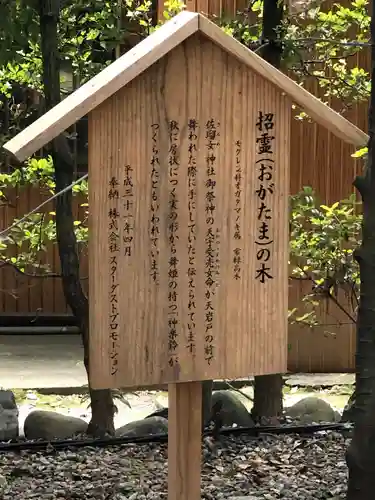 招霊(おがたま)の木
モクレン科オガタマノキ属 常緑高木
佐瑠女神社御祭神の天宇受売命が天岩戸の前で
舞われた際に手にしていたと伝えられています。
秋に房状につく実の形から舞姫の持つ「神楽鈴」が
つくられたともいわれています。
平成三十一年四月
奉納 株式会社スターダストプロモーション